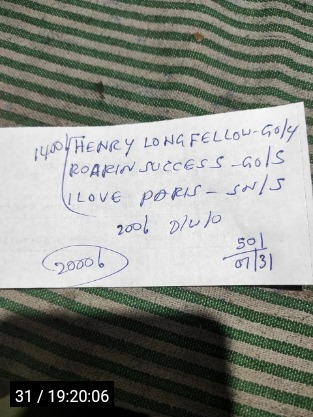 1400b HENRY LONGFELLOW-GO/4
ROARIN SUCCESS - GO/S
I LOVE PARIS - SN/S
200b D/U/O
2000b
501
07/31
31 / 19:20:06